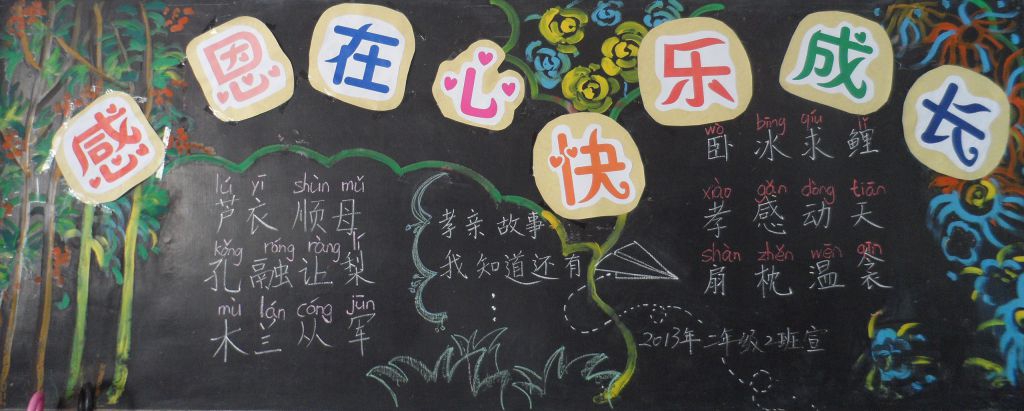 感恩在心快乐成长
lú yī shùn mǔ
芦衣顺母
kǒng róng ràng lí
孔融让梨
mù lán cóng jūn
木兰从军
孝亲故事
我知道还有
⋮
wò bīng qiú lǐ
卧冰求鲤
xiào gǎn dòng tiān
孝感动天
shàn zhěn wēn qīn
扇枕温衾
2013年二年级2班宣